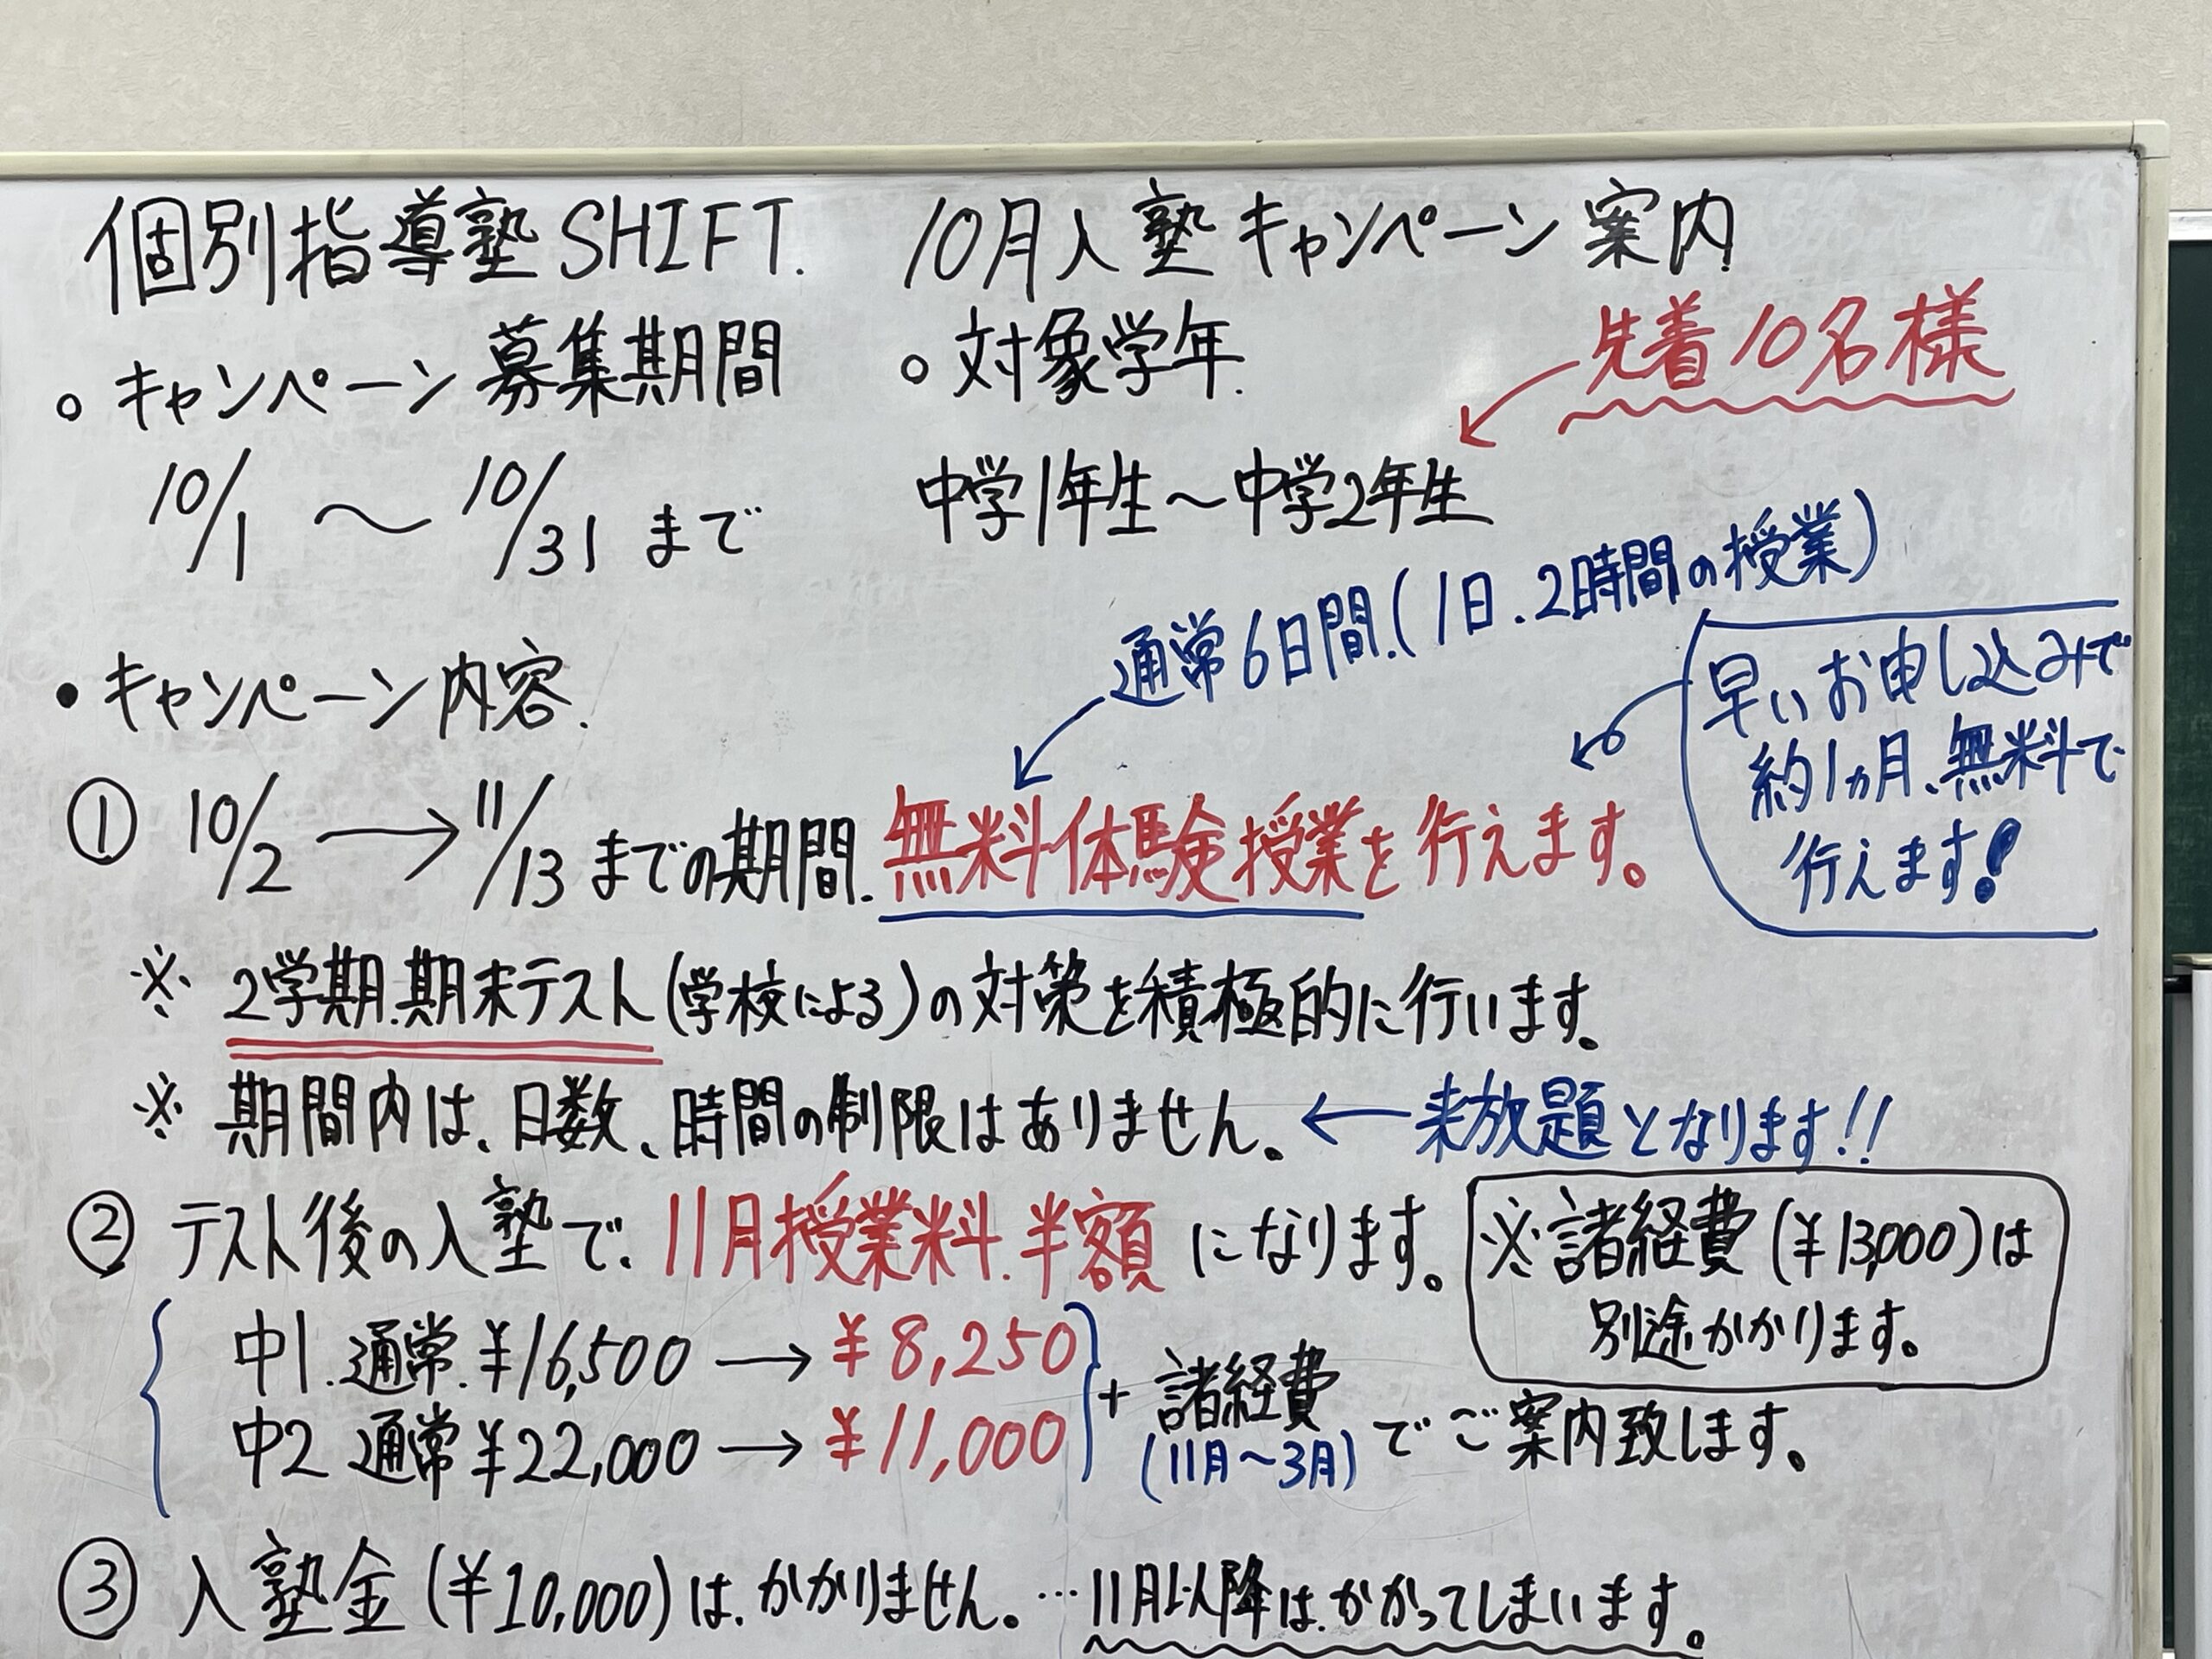 個別指導塾SHIFT. 10月入塾キャンペーン案内
○ キャンペーン募集期間
10/1 ～ 10/31 まで
○ 対象学年.
先着10名様
中学1年生～中学2年生
● キャンペーン内容.
通常6日間.(1日.2時間の授業)
早いお申し込みで
約1ヵ月、無料で
行えます!
① 10/2 → 11/13 までの期間.無料体験授業を行えます。
※ 2学期.期末テスト(学校による)の対策を積極的に行います。
※ 期間内は、日数、時間の制限はありません。← 来放題となります!!
② テスト後の入塾で.11月授業料.半額になります。
※諸経費(¥13,000)は
別途かかります。
中1.通常.¥16,500 → ¥8,250
中2 通常¥22,000 → ¥11,000
+ 諸経費
(11月～3月)
でご案内致します。
③ 入塾金(¥10,000)は.かかりません。…11月以降は.かかってしまいます。